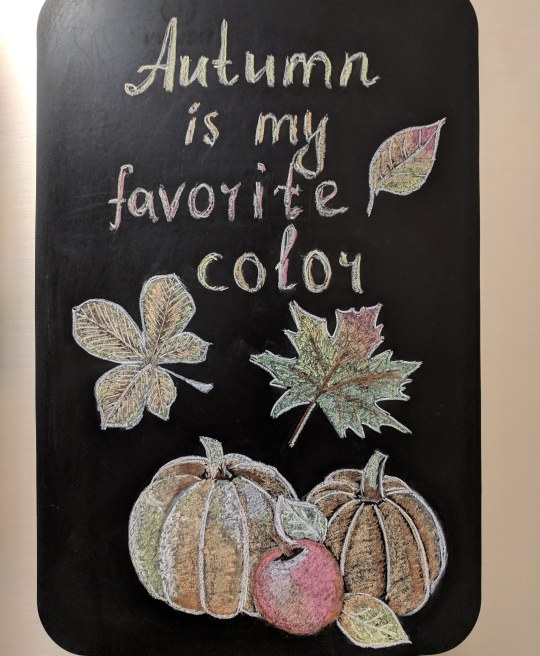 Autumn
is my
favorite
color